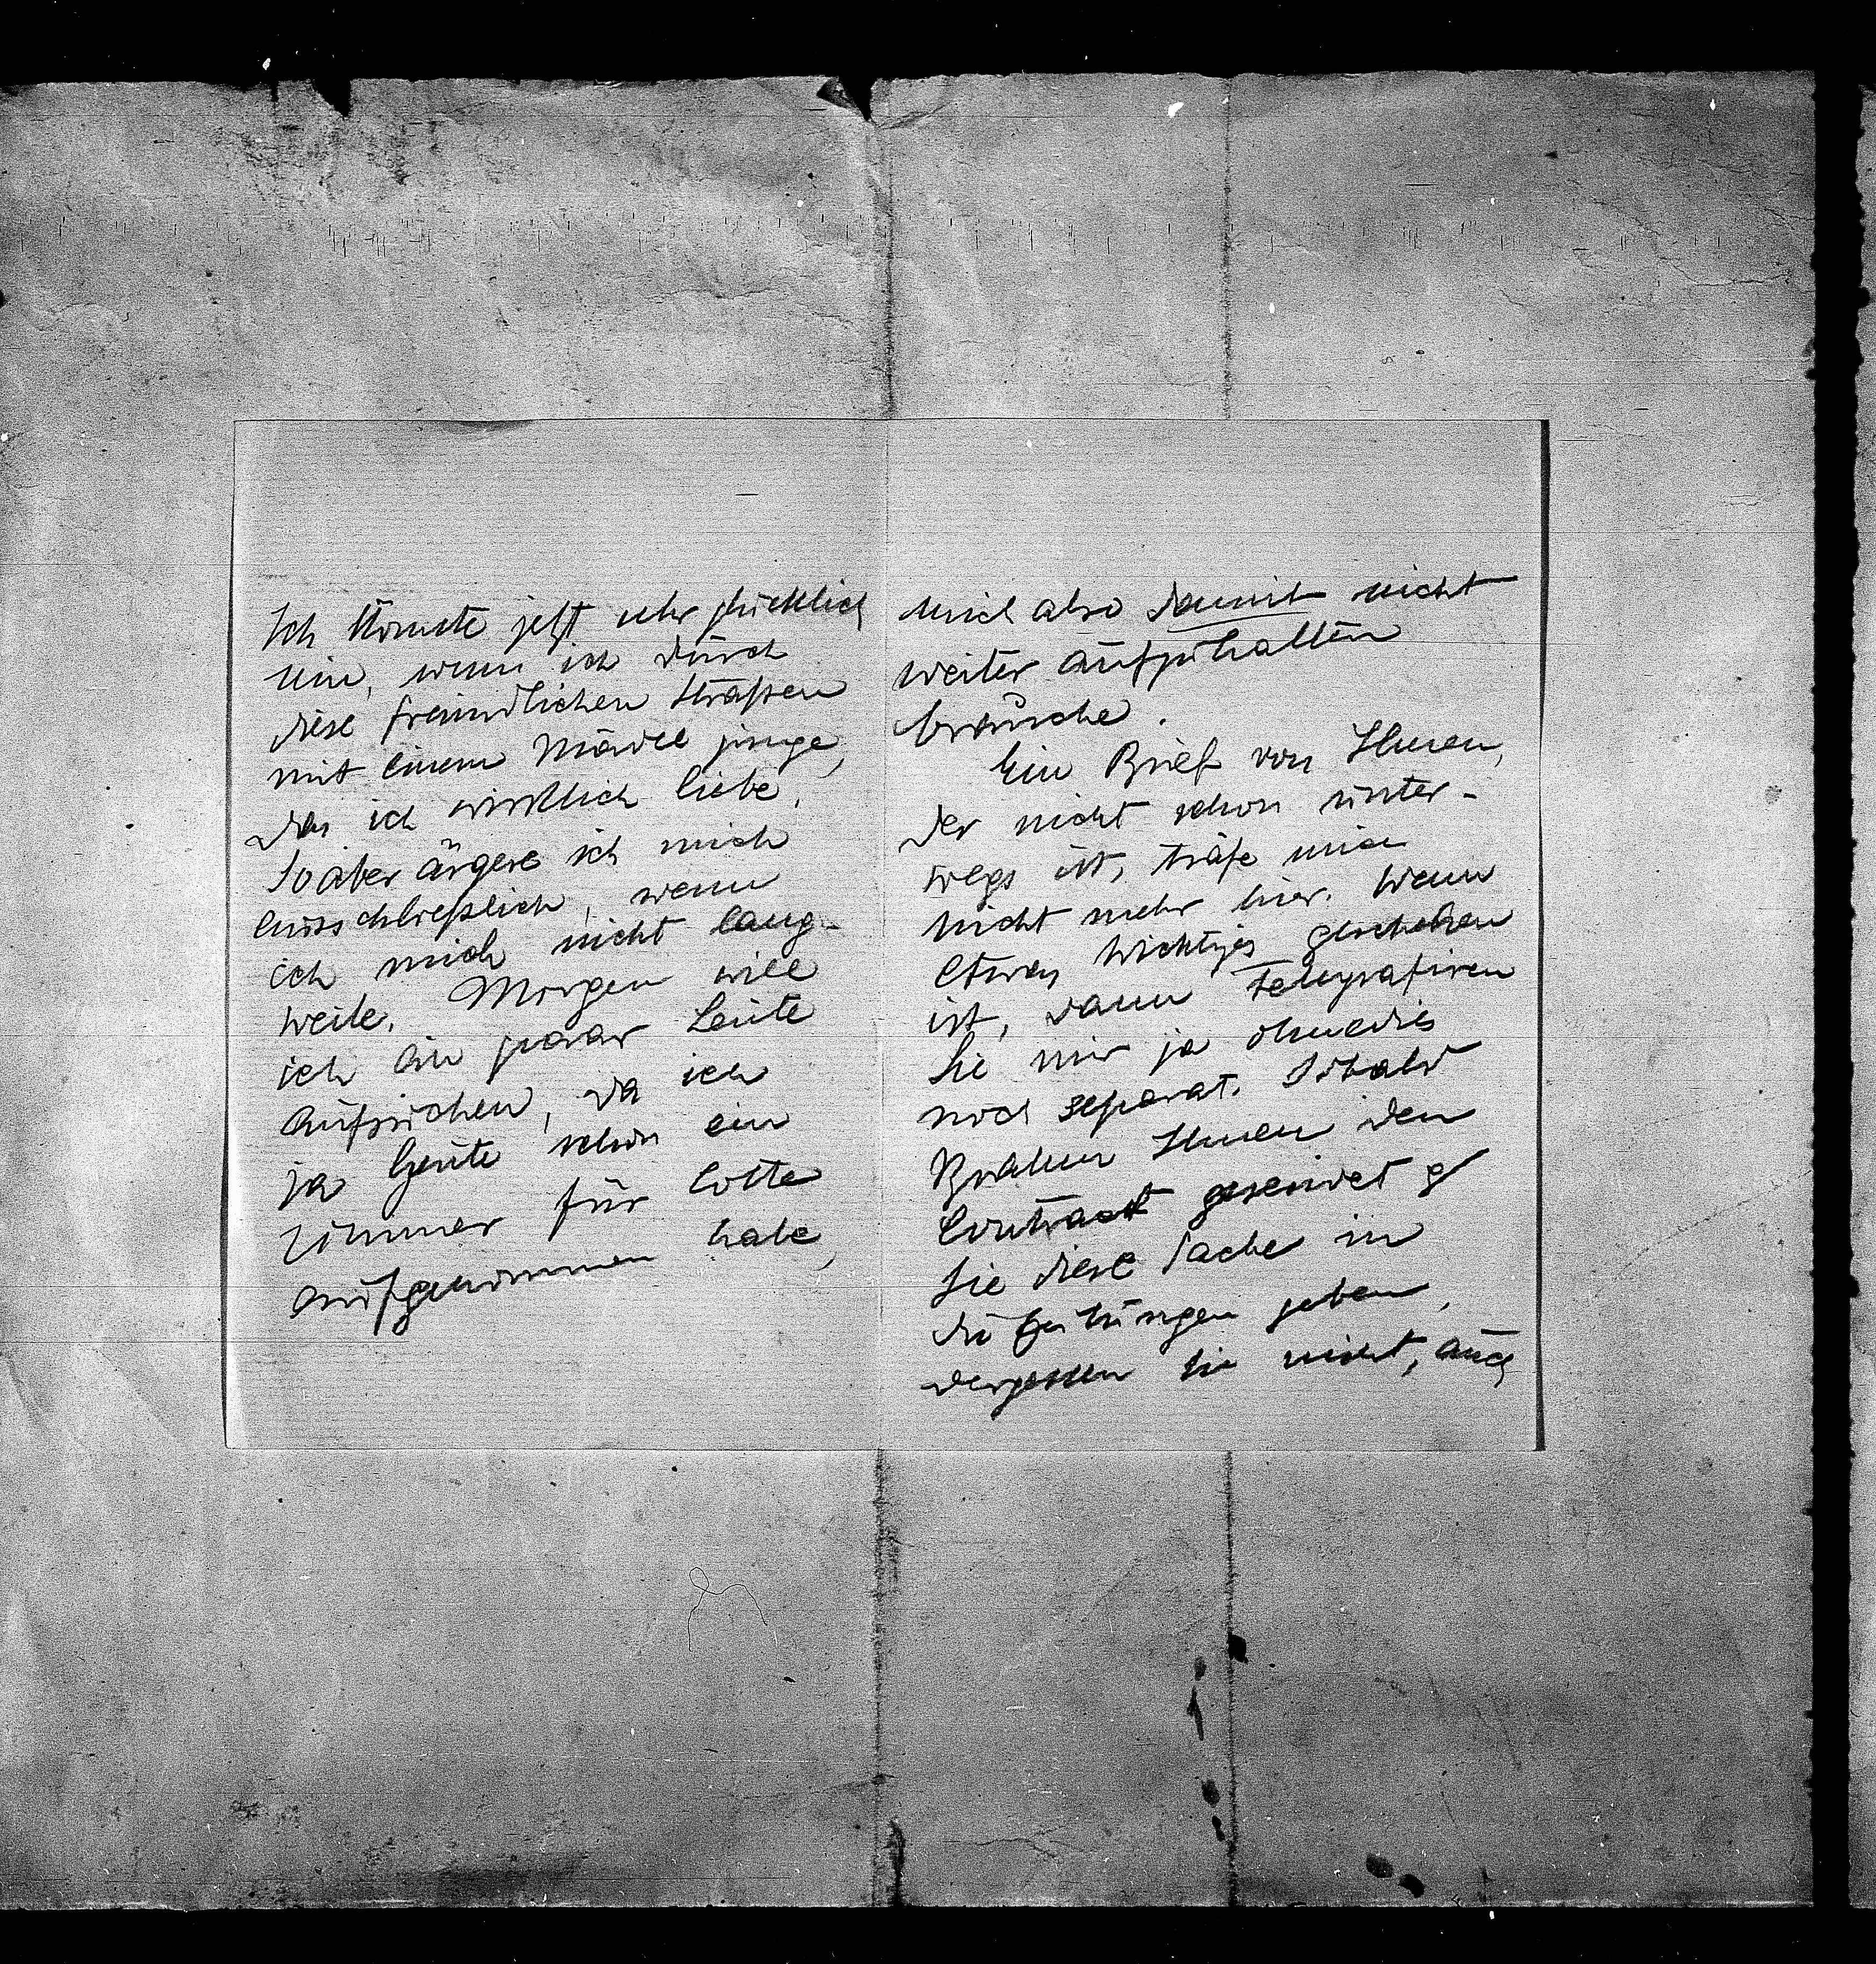 Ich könnte jetzt sehr glücklich
sein, wenn ich durch
diese freundlichen Straßen
mit einem Mädel ginge,
das ich wirklich liebe.
So aber ärgere ich mich
ausschließlich, wenn
ich mich nicht lang-
weile. Morgen will
ich ein paar Leute
aufsuchen, da ich
ja heute schon ein
Zimmer für Lotte
aufgenommen habe,
mich also damit nicht
weiter aufzuhalten
brauche.
Ein Brief von Ihnen,
der nicht schon unter-
wegs ist, träfe mich
nicht mehr hier. Wenn
etwas Wichtiges geschehen
ist, dann telegrafiren
Sie mir ja ohnedies
noch separat. Sobald
Brahm Ihnen den
Contract gesendet &
Sie diese Sache in
die Zeitungen geben,
vergessen Sie nicht, auch